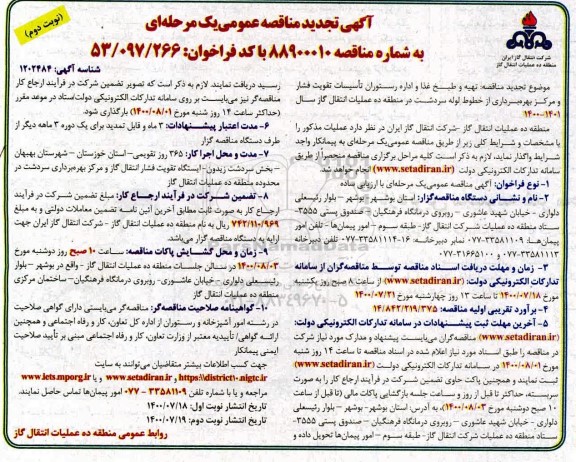 (نوبت دوم)
آگهی تجدید مناقصه عمومی یک مرحله‌ای
به شماره مناقصه ۸۸۹۰۰۰۱۰ با کد فراخوان: ۵۳/۰۹۷/۲۶۶
شرکت انتقال گاز ایران
منطقه ده عملیات انتقال گاز
موضوع تجدید مناقصه: تهیه و طبخ غذا و اداره رستوران تأسیسات تقویت فشار
و مرکز بهره‌برداری از خطوط لوله سردشت در منطقه ده عملیات انتقال گاز سال
۱۴۰۰-۱۴۰۱
منطقه ده عملیات انتقال گاز -شرکت انتقال گاز ایران در نظر دارد عملیات مذکور را
با مشخصات و شرایط کلی زیر از طریق مناقصه عمومی یک مرحله‌ای به پیمانکار واجد
شرایط واگذار نماید، لازم به ذکر است کلیه مراحل برگزاری مناقصه منحصراً از طریق
سامانه تدارکات الکترونیکی دولت (www.setadiran.ir) انجام خواهد شد.
۱- نوع فراخوان: آگهی مناقصه عمومی یک مرحله‌ای با ارزیابی ساده
۲- نام و نشانی دستگاه مناقصه‌گزار: استان بوشهر- بوشهر - بلوار رئیسعلی
دلواری - خیابان شهید عاشوری - روبروی درمانگاه فرهنگیان - صندوق پستی ۳۵۵۵-
ستاد منطقه ده عملیات انتقال گاز - طبقه سوم - امور پیمان‌ها - تلفن امور
پیمان‌هــا: ۳۳۵۸۱۱۰۹-۰۷۷ نمابر دبیرخانه: ۳۳۵۸۱۱۱۴-۱۶-۰۷۷ تلفن دبیرخانه
۳۳۵۸۱۱۱۳-۰۷۷ و ۳۱۶۶۵۱۰۰-۰۷۷
۳- زمان و مهلت دریافت اسناد مناقصه توسط مناقصه‌گران از سامانه
تدارکات الکترونیکی دولت: (www.setadiran.ir) از ساعت ۸ صبح روز یکشنبه
مورخ ۱۴۰۰/۰۷/۱۸ تا ساعت ۱۳ روز چهارشنبه مورخ ۱۴۰۰/۰۷/۲۱
۴- برآورد تقریبی اولیه مناقصه: ۱۴/۸۴۲/۲۱۹/۳۷۵
۵- آخرین مهلت ثبت پیشنهادات در سامانه تدارکات الکترونیکی دولت:
(www.setadiran.ir) مناقصه‌گران می‌بایست پیشنهاد و مدارک مورد نیاز شرکت
در مناقصه را طبق اسناد مورد نیاز اعلام شده در اسناد مناقصه تا ساعت ۱۴ روز شنبه
مورخ ۱۴۰۰/۰۸/۰۱ در سامانه تدارکات الکترونیکی دولت (www.setadiran.ir)
ثبت نمایند و همچنین پاکت حاوی تضمین شرکت در فرآیند ارجاع کار را به صورت
سربسته، حداکثر تا قبل از روز و ساعت جلسه بازگشایی پاکات مالی (تا قبل از ساعت
۱۰ صبح دوشنبه مورخ ۱۴۰۰/۰۸/۰۳)، به آدرس: استان بوشهر- بوشهر - بلوار رئیسعلی
دلواری - خیابان شهید عاشوری – روبروی درمانگاه فرهنگیان – صندوق پستی ۳۵۵۵-
ستاد منطقه ده عملیات انتقال گاز- طبقه سوم – امور پیمان‌ها تحویل داده و
شناسه آگهی: ۱۲۰۲۴۸۴
رسید دریافت نمایند. لازم به ذکر است که تصویر تضمین شرکت در فرآیند ارجاع کار
مناقصه‌گر نیز می‌بایست بر روی سامانه تدارکات الکترونیکی دولت/ستاد در موعد مقرر
(حداکثر ساعت ۱۴ روز شنبه مورخ ۱۴۰۰/۰۸/۰۱) بارگذاری شود.
۶- مدت اعتبار پیشنهادات: ۳ ماه و قابل تمدید برای یک دوره ۳ ماهه دیگر از
طرف دستگاه مناقصه گزار
۷- مدت و محل اجرا کار: ۳۶۵ روز تقویمی– استان خوزستان – شهرستان بهبهان
– بخش سردشت زیدون- ایستگاه تقویت فشار انتقال گاز و مرکز بهره‌برداری سردشت در
محدوده منطقه ده عملیات انتقال گاز
۸- تضمین شرکت در فرآیند ارجاع کار: مبلغ تضمین شرکت در فرآیند
ارجاع کار به صورت ثابت مطابق آخرین آئین نامه تضمین معاملات دولتی و به مبلغ
۷۴۲/۱۱۰/۹۶۹ ریال به نام منطقه ده عملیات انتقال گاز - شرکت انتقال گاز ایران جهت
ارایه به دستگاه مناقصه گزار می‌باشد.
۹- زمان و محل گشایش پاکات مناقصه: ساعت ۱۰ صبح روز دوشنبه مورخ
۱۴۰۰/۰۸/۰۳ در سالن جلسات منطقه ده عملیات انتقال گاز - واقع در بوشهر – بلوار
رئیسعلی دلواری – خیابان عاشوری- روبروی درمانگاه فرهنگیان- ساختمان مرکزی
منطقه ده عملیات انتقال گاز
۱۰- گواهینامه صلاحیت مناقصه‌گر: مناقصه‌گر می‌بایستی دارای گواهی صلاحیت
در رشته امور آشپزخانه و رستوران از اداره کل تعاون، کار و رفاه اجتماعی و همچنین
ارائه گواهی/ تأییدیه معتبر از وزارت تعاون، کار و رفاه اجتماعی مبنی بر تأیید صلاحیت
ایمنی پیمانکار
جهت کسب اطلاعات بیشتر متقاضیان می‌توانند به سایت
https://district10.nigtc.ir و www.setadiran.ir و یا www.iets.mporg.ir
مراجعه و یا با شماره تلفن ۳۳۵۸۱۱۰۹ – ۰۷۷ امور پیمان‌ها تماس حاصل نمایند.
تاریخ انتشار نوبت اول: ۱۴۰۰/۰۷/۱۸
تاریخ انتشار نوبت دوم: ۱۴۰۰/۰۷/۱۹
روابط عمومی منطقه ده عملیات انتقال گاز